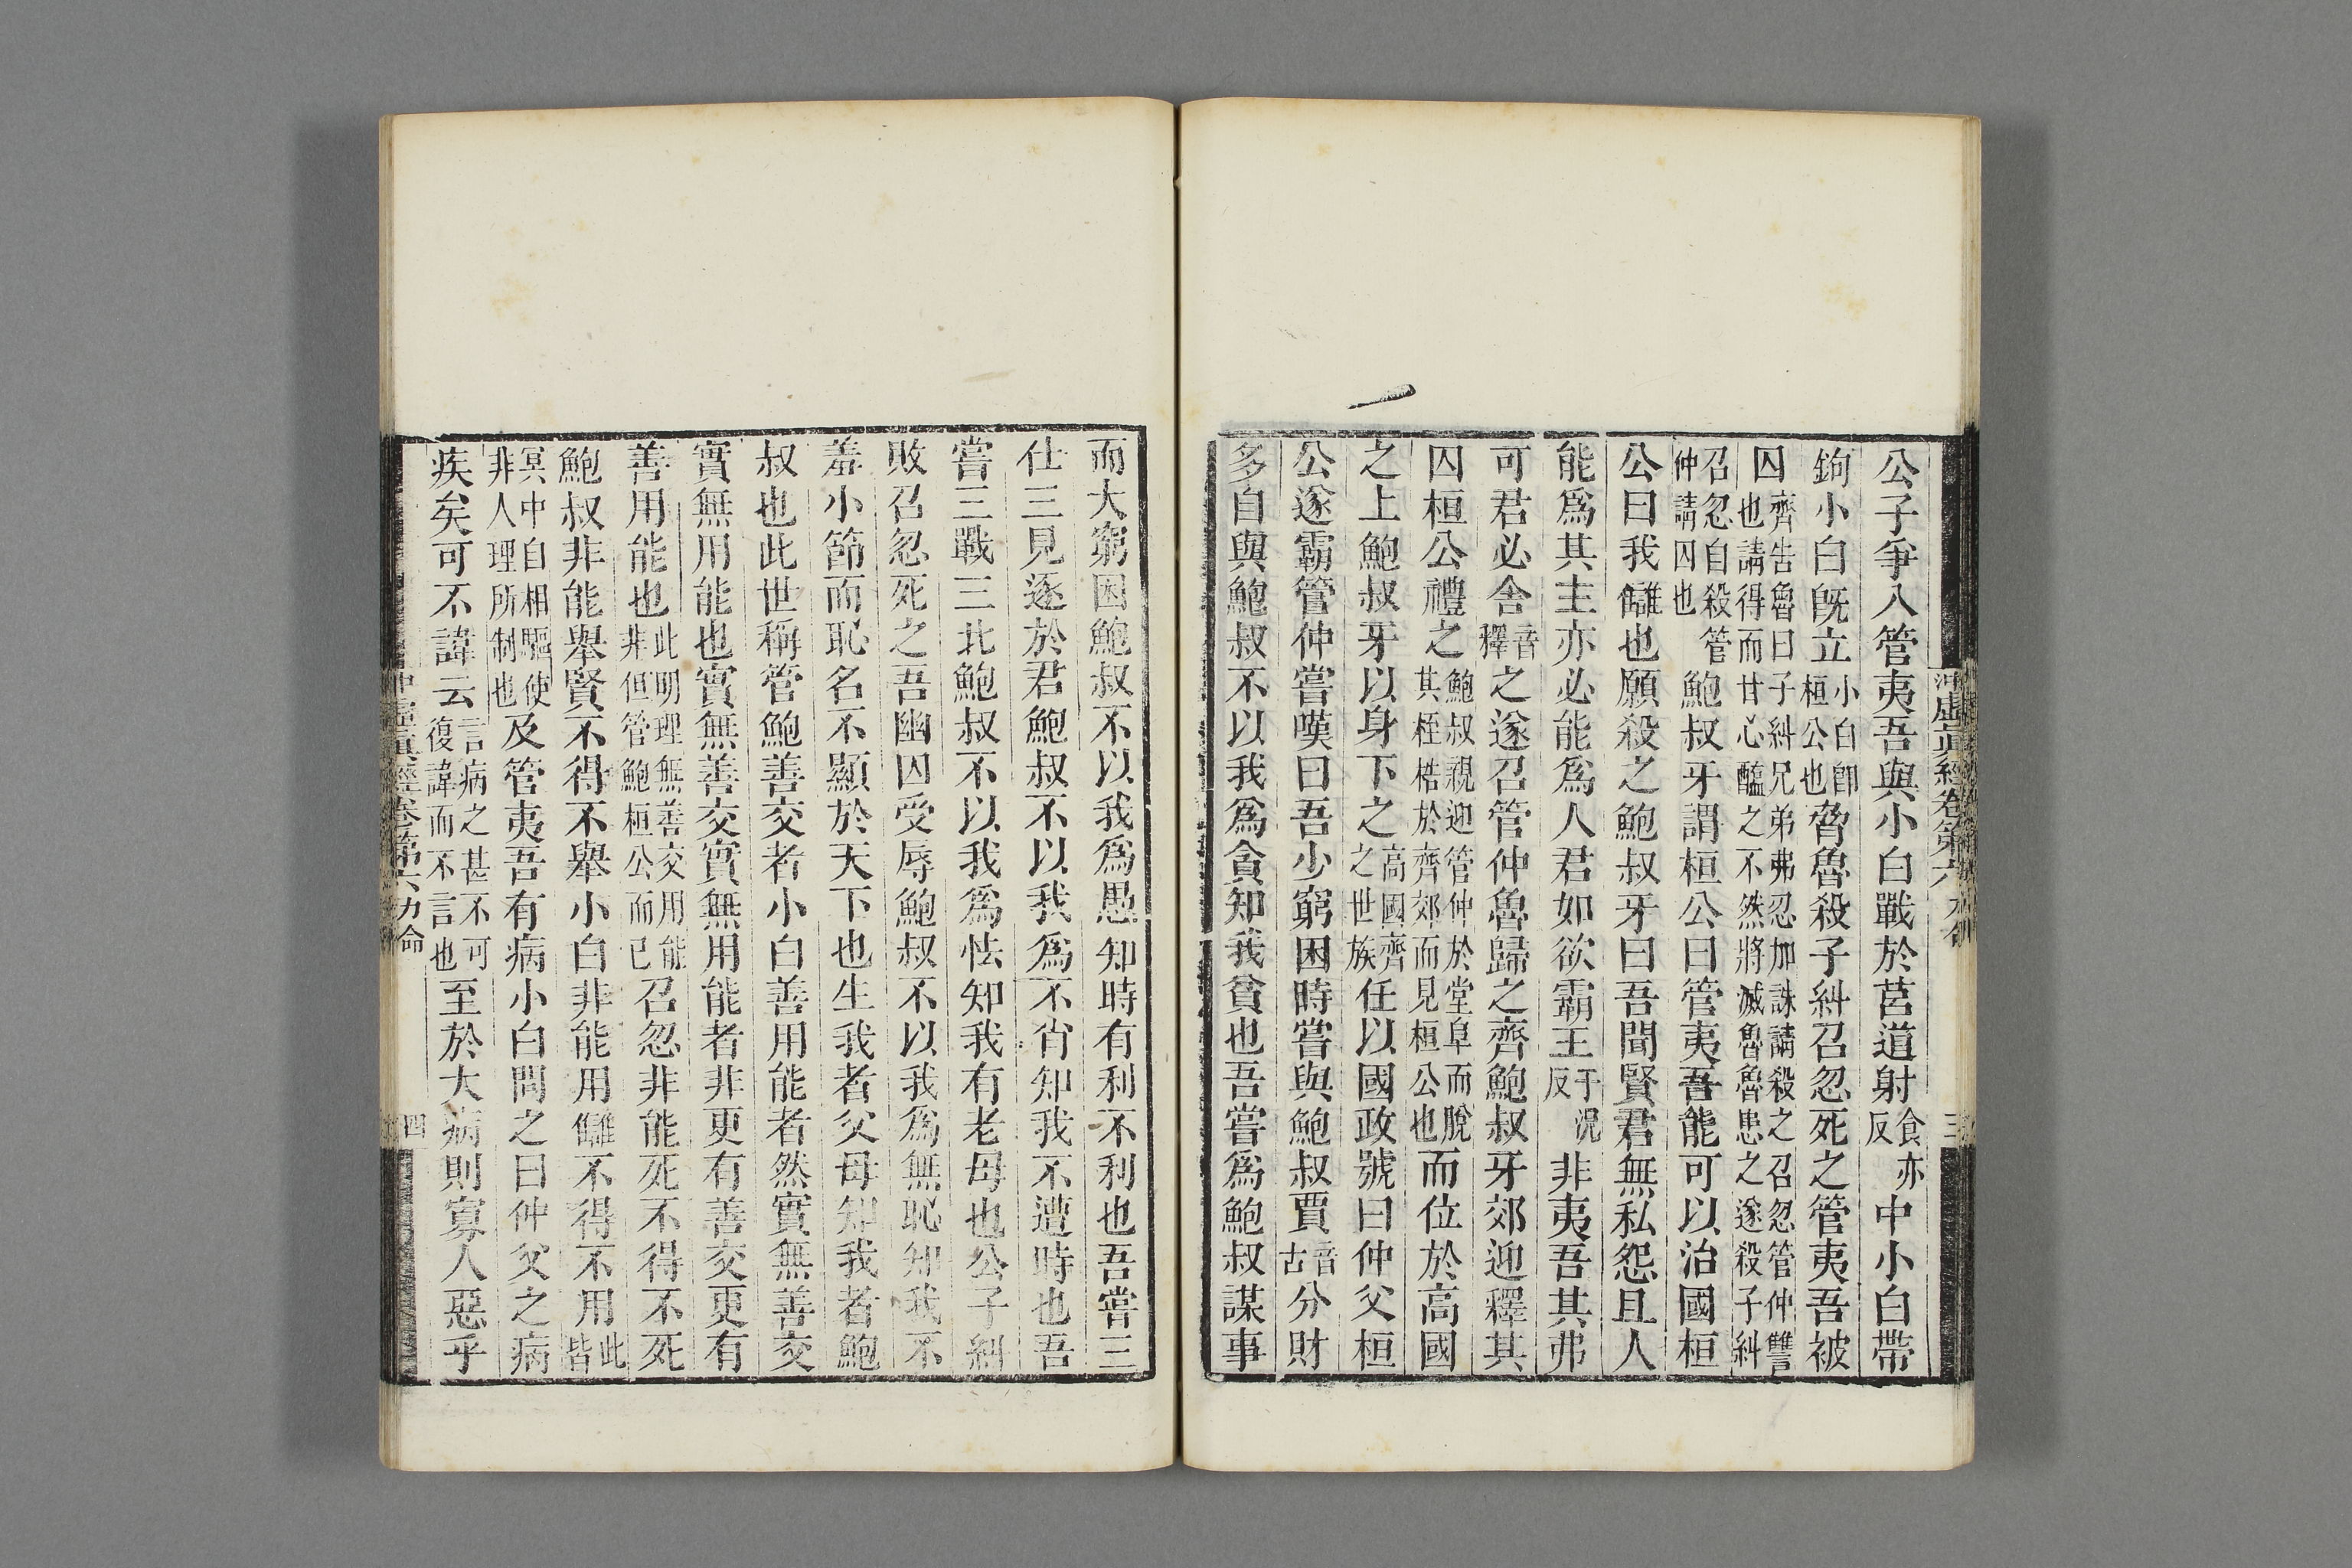 公子爭入管夷吾與小白戰於莒道射食亦反中小白帶
鉤小白旣立小白卽桓公也脅魯殺子糾召忽死之管夷吾被
囚齊告魯曰子糾兄弟弗忍加誅請殺之召忽管仲讐也請得而甘心醢之不然將滅魯魯患之遂殺子糾
召忽自殺管仲請囚也鮑叔牙謂桓公曰管夷吾能可以治國桓
公曰我讎也願殺之鮑叔牙曰吾聞賢君無私怨且人
能爲其主亦必能爲人君如欲霸王于況反非夷吾其弗
可君必舍音釋之遂召管仲魯歸之齊鮑叔牙郊迎釋其
囚桓公禮之鮑叔親迎管仲於堂阜而脫其桎梏於齊郊而見桓公也而位於高國
之上鮑叔牙以身下之高國齊之世族任以國政號曰仲父桓
公遂霸管仲嘗嘆曰吾少窮困時嘗與鮑叔賈音古分財
多自與鮑叔不以我爲貪知我貧也吾嘗爲鮑叔謀事
而大窮困鮑叔不以我爲愚知時有利不利也吾嘗三
仕三見逐於君鮑叔不以我爲不肖知我不遭時也吾
嘗三戰三北鮑叔不以我爲怯知我有老母也公子糾
敗召忽死之吾幽囚受辱鮑叔不以我爲無恥知我不
羞小節而恥名不顯於天下也生我者父母知我者鮑
叔也此世稱管鮑善交者小白善用能者然實無善交
實無用能也實無善交實無用能者非更有善交更有
善用能也此明理無善交用能非但管鮑桓公而已召忽非能死不得不死
鮑叔非能舉賢不得不舉小白非能用讎不得不用此皆
冥中自相驅使非人理所制也及管夷吾有病小白問之曰仲父之病
疾矣可不諱云言病之甚不可復諱而不言也至於大病則寡人惡乎
沖虛眞經卷第六力命
四